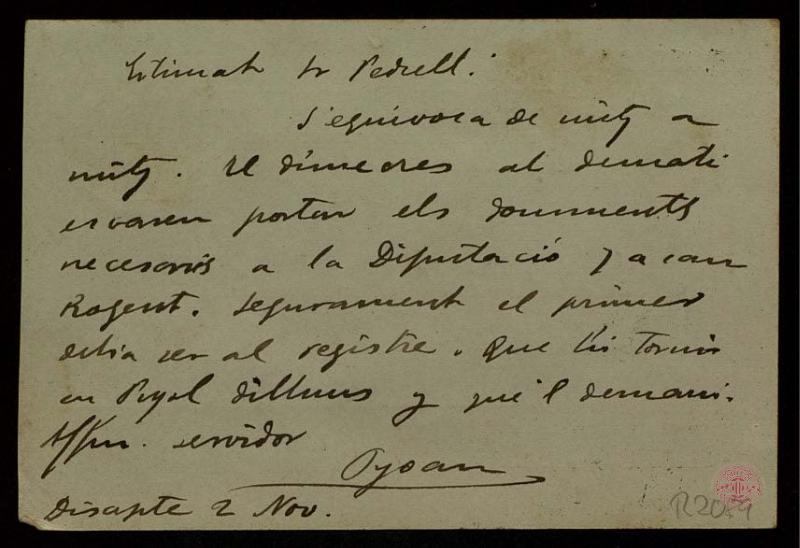 Estimat Sr Pedrell:
S'equivoca de mitj a
mitj. El dimecres al demati
es varen portar els documents
necesaris a la Diputació y a can
Rogent. Segurament el primer
debia ser al registre. Que hi torni
en Pujol dilluns y que'l demani.
Affm. servidor
Pijoan
Disapte 2 Nov.
R2059